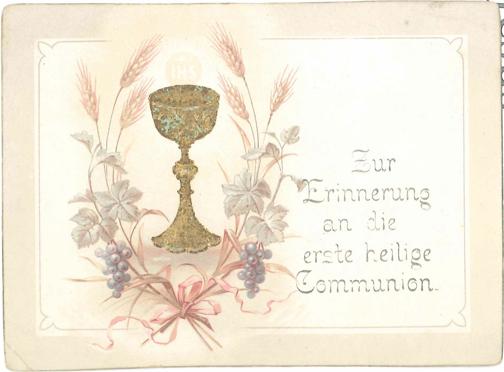 IHS
Zur
Erinnerung
an die
erste heilige
Communion.